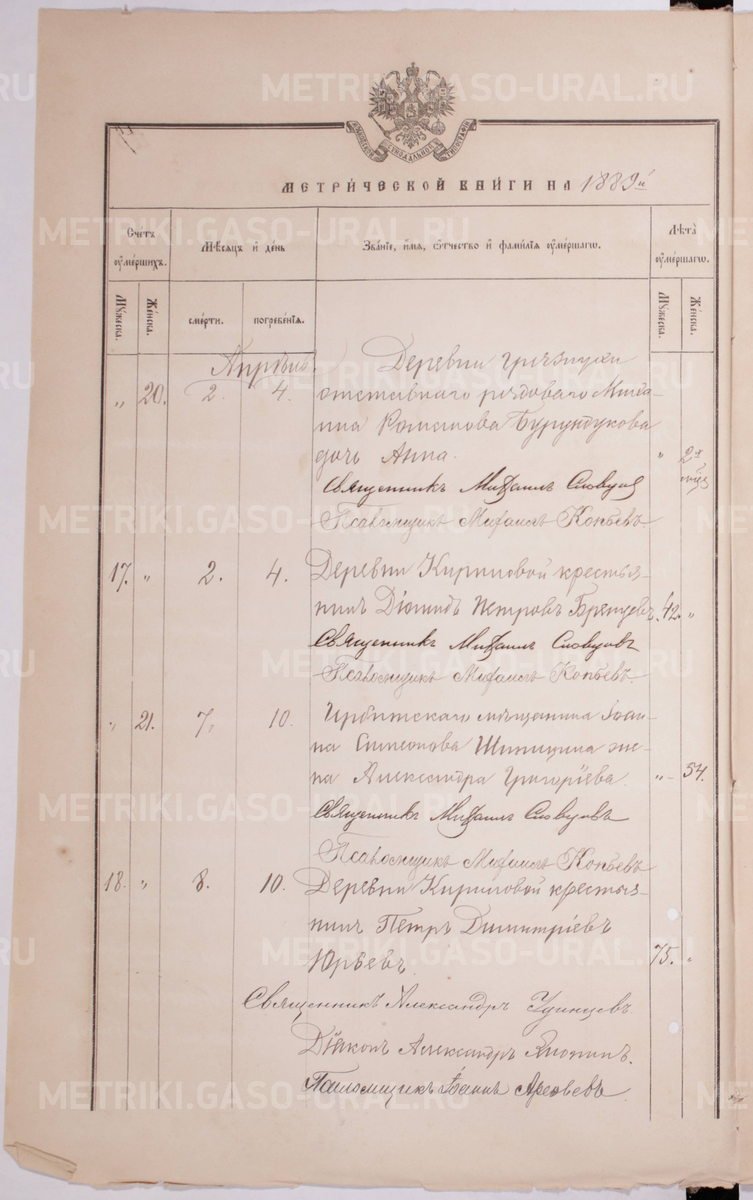 METRIKI.GASO-URAL.RU
МЕТРИ́ЧЕСКОЙ КНИ́ГИ НА 1889й
Сче́тъ ᲂу҆ме́ршихъ.
Мѣ́сяцъ и҆ де́нь
Зва́нїе, и҆́мя, ѻ҆́тчество и҆ фами́лїя ᲂу҆ме́ршаго.
Лѣ́та ᲂу҆ме́ршаго.
Му́жеска.
Же́нска.
сме́рти.
погребе́нїя.
Му́жеска.
Же́нска.
Апрѣль.
Деревни
„ 20. 2. 4. отставнаго рядоваго Миха-
ила Романова Бурундукова
дочь Анна. „ 2х
Священникъ Михаилъ Словцов
Псаломщикъ Михаилъ Копьевъ
17. „ 2. 4. Деревни Кириловой крестья-
нинъ Діомидъ Петровъ 42. „
Священникъ Михаилъ Словцовъ
Псаломщикъ Михаилъ Копьевъ.
„ 21. 7, 10. Ирбитскаго мѣщанина Іоан-
на Симеонова Шипицина же-
на Александра Григоріева. „ 54.
Священникъ Михаилъ Словцовъ
Псаломщикъ Михаилъ Копьевъ
18. „ 8. 10. Деревни Кириловой крестья-
нинъ Петръ Димитріевъ
Юрьевъ. 75. „
Священникъ Александръ Удинцевъ
Діаконъ Александръ
Псаломщикъ Іоаннъ Арефьевъ.